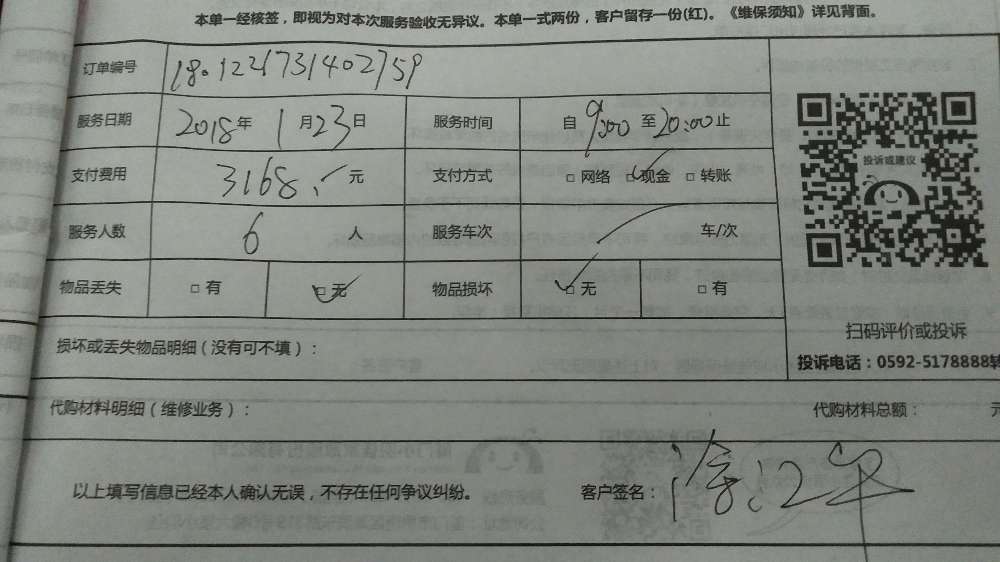 本单一经核签，即视为对本次服务验收无异议。本单一式两份，客户留存一份(红)。《维保须知》详见背面。
订单编号 1801221731402759
服务日期 2018年 1月23日 服务时间 自 9:00 至 20:00 止
投诉或建议
支付费用 3168.- 元 支付方式 □ 网络 ☑ 现金 □ 转账
服务人数 6 人 服务车次 / 车/次
物品丢失 □ 有 ☑ 无 物品损坏 ☑ 无 □ 有
扫码评价或投诉
损坏或丢失物品明细（没有可不填）：
投诉电话：0592-5178888转
代购材料明细（维修业务）： 代购材料总额： 元
以上填写信息已经本人确认无误，不存在任何争议纠纷。 客户签名：